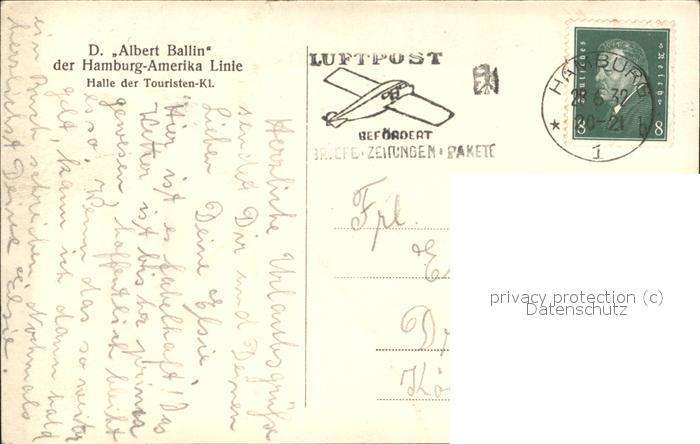 D. „Albert Ballin“
der Hamburg-Amerika Linie
Halle der Touristen-Kl.
LUFTPOST
BEFÖRDERT
BRIEFE · ZEITUNGEN · PAKETE
HAMBURG
6.30
20-21
1
Deutsches Reich
8 8
Herrliche Urlaubsgrüße
sendet Dir und Deinen
Lieben Deine Elsie
Hier ist es fabelhaft! Das
Wetter ist bisher prima
gewesen, hoffentlich bleibt
es so. Wenn das so weiter
geht, kann ich dann bald
ein Buch schreiben. Nochmals
herzlichst Deine Elsie.
Frl.
privacy protection (c)
Datenschutz